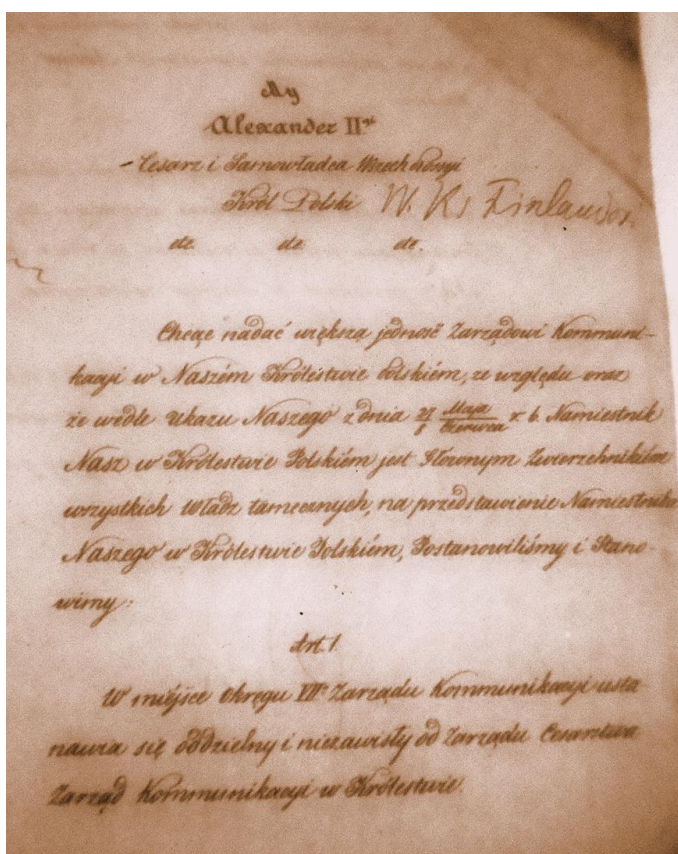 My
Alexander II<sup>gi</sup>
Cesarz i Samowładca Wszech Rossyi
Król Polski W. Ks Finlandzki
etc. etc. etc.
Chcąc nadać większą jedność Zarządowi Kommuni-
kacyi w Naszém Królestwie Polskiém, ze względu oraz
że wedle Ukazu Naszego z dnia 27 Maja / 8 Czerwca r. b. Namiestnik
Nasz w Królestwie Polskiém jest Głównym Zwierzchnikiém
wszystkich Władz tamecznych, na przedstawienie Namiestnika
Naszego w Królestwie Polskiém, Postanowiliśmy i Stano-
wimy:
Art. 1.
W miéjsce Okręgu XIII<sup>o</sup> Zarządu Kommunikacyi usta-
nawia się oddzielny i niezawisły od Zarządu Cesarstwa
Zarząd Kommunikacyi w Królestwie.